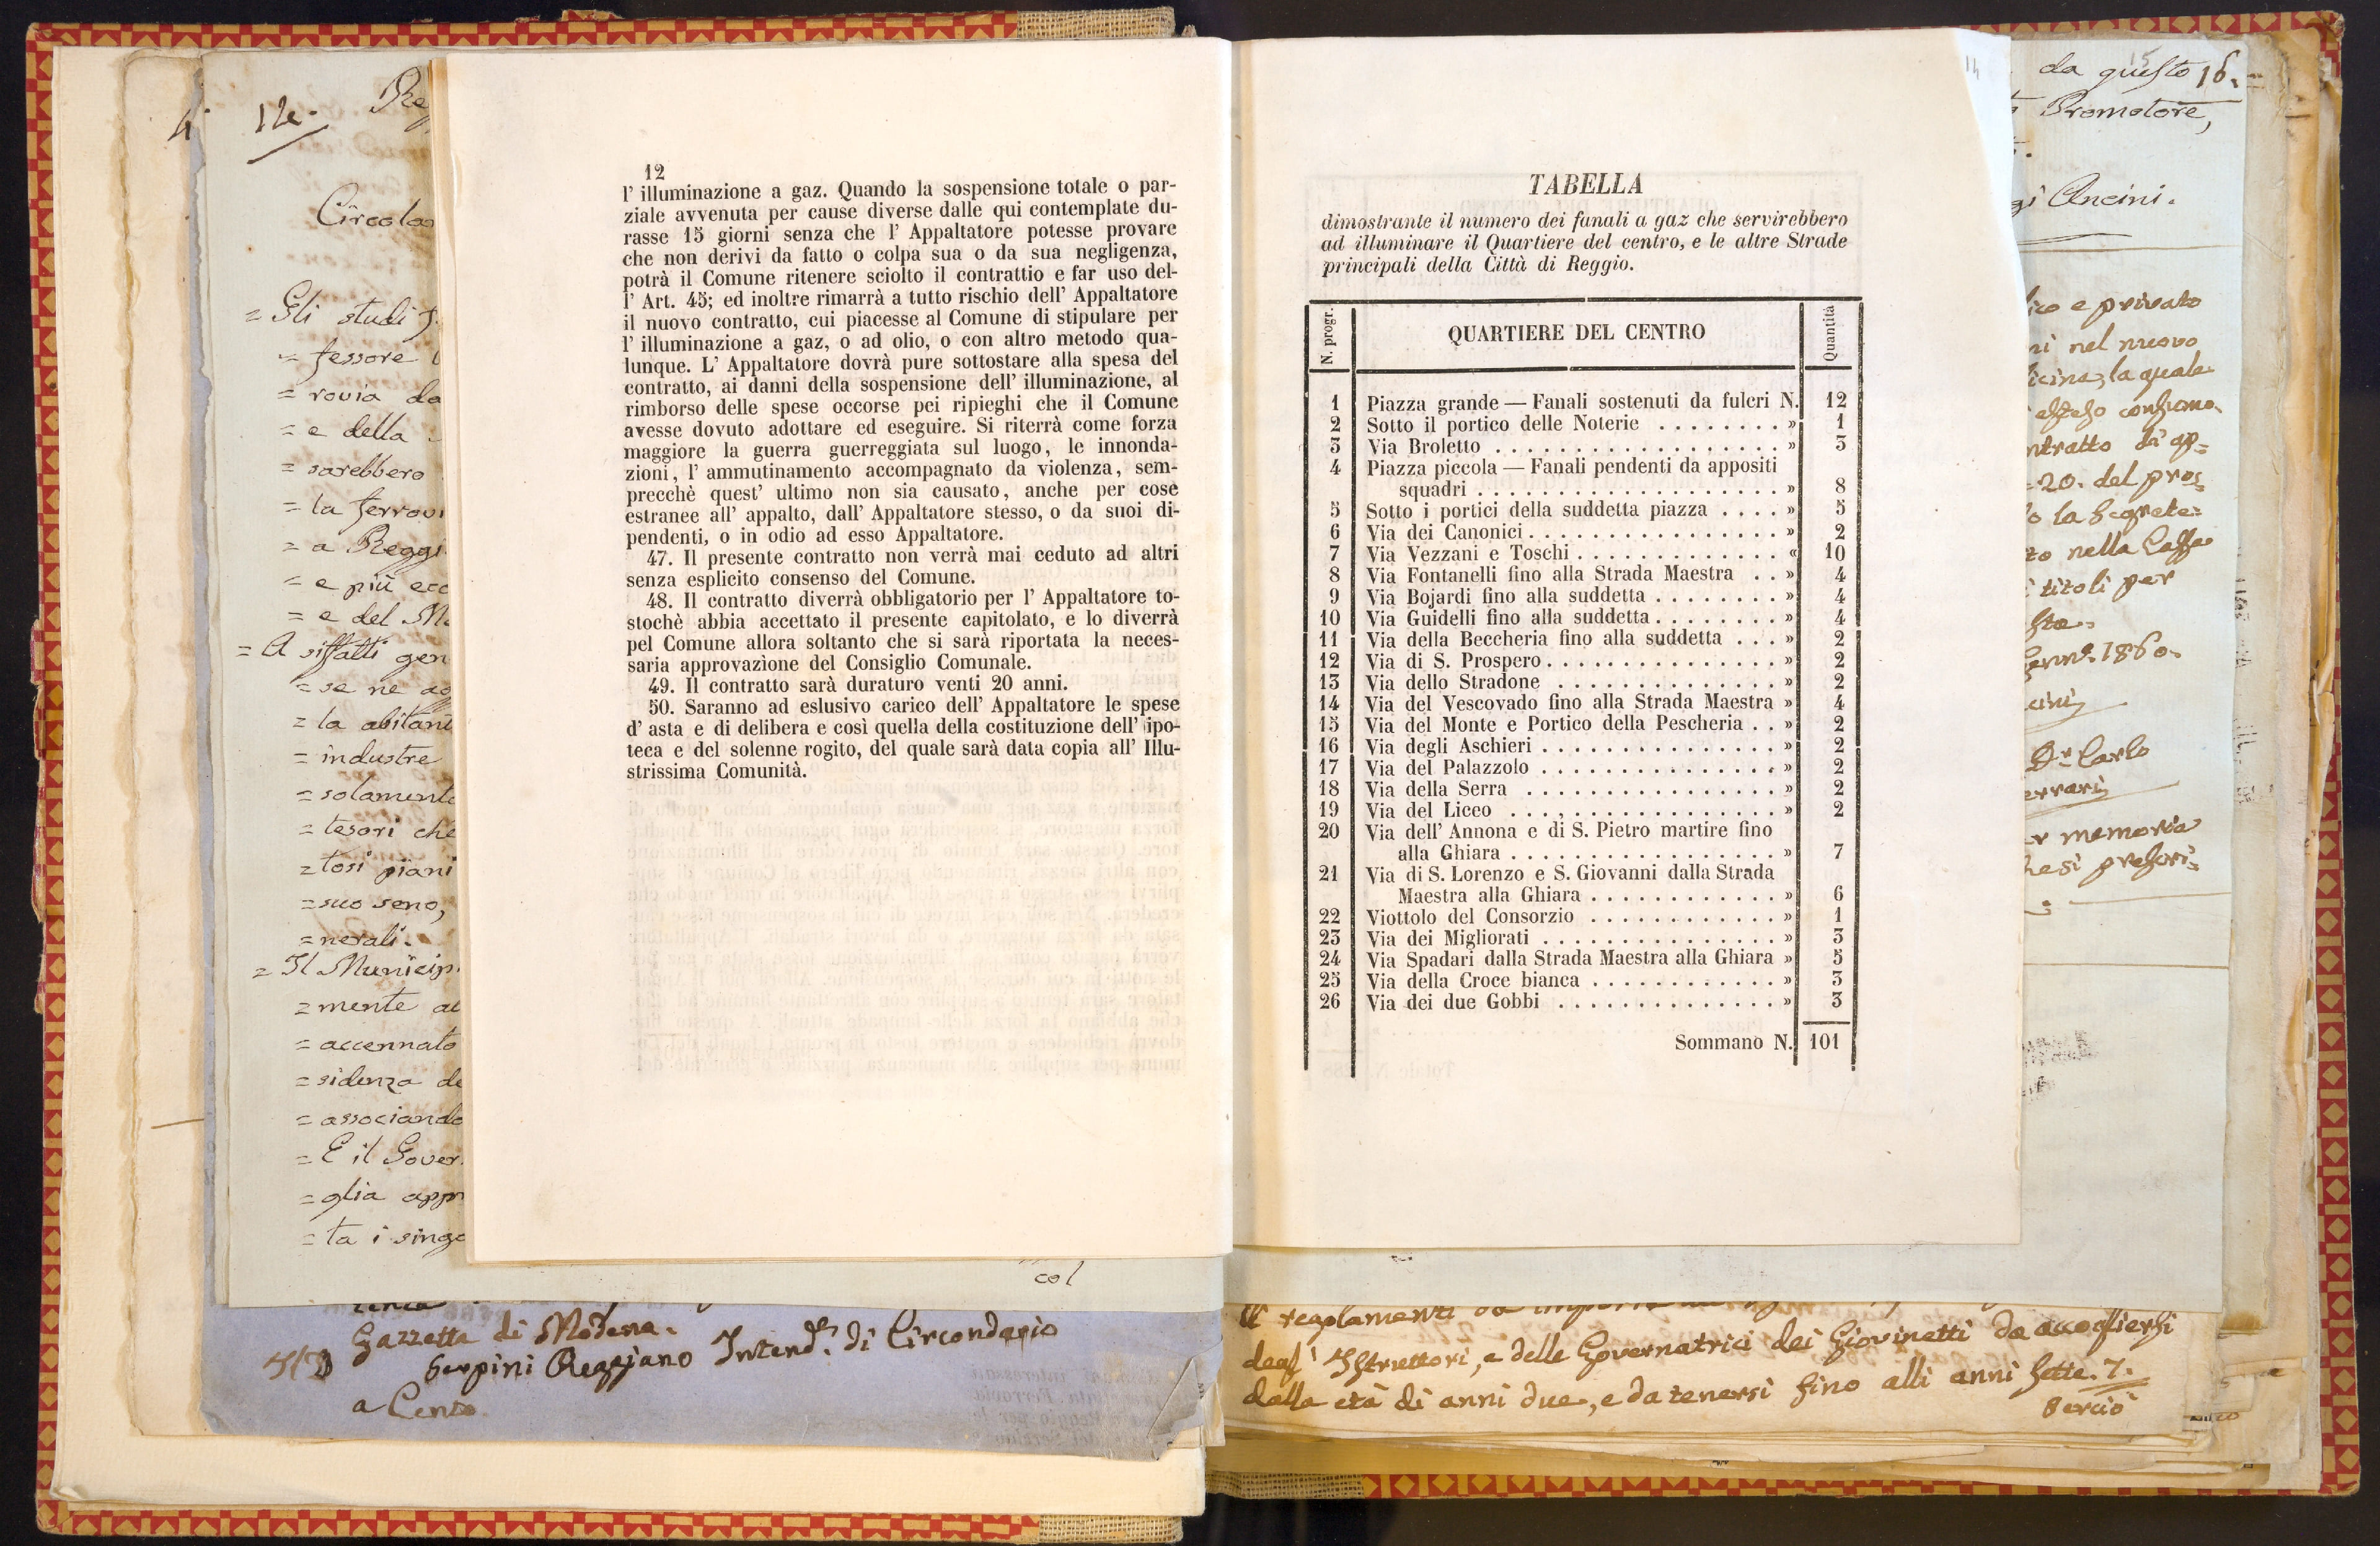 12
l' illuminazione a gaz. Quando la sospensione totale o par-
ziale avvenuta per cause diverse dalle qui contemplate du-
rasse 15 giorni senza che l' Appaltatore potesse provare
che non derivi da fatto o colpa sua o da sua negligenza,
potrà il Comune ritenere sciolto il contrattio e far uso del-
l' Art. 45; ed inoltre rimarrà a tutto rischio dell' Appaltatore
il nuovo contratto, cui piacesse al Comune di stipulare per
l' illuminazione a gaz, o ad olio, o con altro metodo qua-
lunque. L' Appaltatore dovrà pure sottostare alla spesa del
contratto, ai danni della sospensione dell' illuminazione, al
rimborso delle spese occorse pei ripieghi che il Comune
avesse dovuto adottare ed eseguire. Si riterrà come forza
maggiore la guerra guerreggiata sul luogo, le innonda-
zioni, l' ammutinamento accompagnato da violenza, sem-
precchè quest' ultimo non sia causato, anche per cose
estranee all' appalto, dall' Appaltatore stesso, o da suoi di-
pendenti, o in odio ad esso Appaltatore.
47. Il presente contratto non verrà mai ceduto ad altri
senza esplicito consenso del Comune.
48. Il contratto diverrà obbligatorio per l' Appaltatore to-
stochè abbia accettato il presente capitolato, e lo diverrà
pel Comune allora soltanto che si sarà riportata la neces-
saria approvazione del Consiglio Comunale.
49. Il contratto sarà duraturo venti 20 anni.
50. Saranno ad eslusivo carico dell' Appaltatore le spese
d' asta e di delibera e così quella della costituzione dell' ipo-
teca e del solenne rogito, del quale sarà data copia all' Illu-
strissima Comunità.
TABELLA
dimostrante il numero dei fanali a gaz che servirebbero
ad illuminare il Quartiere del centro, e le altre Strade
principali della Città di Reggio.
N. progr. QUARTIERE DEL CENTRO Quantità
1 Piazza grande — Fanali sostenuti da fulcri N. 12
2 Sotto il portico delle Noterie . . . . . . . . » 1
3 Via Broletto . . . . . . . . . . . . . . . . . . » 3
4 Piazza piccola — Fanali pendenti da appositi
squadri . . . . . . . . . . . . . . . . . . . » 8
5 Sotto i portici della suddetta piazza . . . . » 5
6 Via dei Canonici . . . . . . . . . . . . . . . . » 2
7 Via Vezzani e Toschi . . . . . . . . . . . . . « 10
8 Via Fontanelli fino alla Strada Maestra . . » 4
9 Via Bojardi fino alla suddetta . . . . . . . . » 4
10 Via Guidelli fino alla suddetta . . . . . . . . » 4
11 Via della Beccheria fino alla suddetta . . . » 2
12 Via di S. Prospero . . . . . . . . . . . . . . . » 2
13 Via dello Stradone . . . . . . . . . . . . . . » 2
14 Via del Vescovado fino alla Strada Maestra » 4
15 Via del Monte e Portico della Pescheria . . » 2
16 Via degli Aschieri . . . . . . . . . . . . . . . » 2
17 Via del Palazzolo . . . . . . . . . . . . . . . » 2
18 Via della Serra . . . . . . . . . . . . . . . . » 2
19 Via del Liceo . . . . . . . . . . . . . . . . . » 2
20 Via dell' Annona e di S. Pietro martire fino
alla Ghiara . . . . . . . . . . . . . . . . . » 7
21 Via di S. Lorenzo e S. Giovanni dalla Strada
Maestra alla Ghiara . . . . . . . . . . . . » 6
22 Viottolo del Consorzio . . . . . . . . . . . . » 1
23 Via dei Migliorati . . . . . . . . . . . . . . . » 3
24 Via Spadari dalla Strada Maestra alla Ghiara » 5
25 Via della Croce bianca . . . . . . . . . . . . » 3
26 Via dei due Gobbi . . . . . . . . . . . . . . » 3
Sommano N. 101
= Gli studi
= fessore
= rovia
= e della
= sarebbero
= la ferrovi
= a Reggi
= e più
= e del
= A siffatti gen
= se ne
= la abitant
= industre
= solamente
= tesori che
= tosi piani
= suo seno,
= nerali.
= Il Municip
= mente
= accennato
= sidenza
= associando
= E il Gover
= glia
= ta i
col
Gazzetta di Modena.
Serpini Reggiano Intend. di Circondario
a Cento
da questo 16.
Promotore,
Ancini.
e privato
nel nuovo
la quale
20. del
nella Cassa
titoli per
1860.
Dr Carlo
memoria
degl' Istruttori, e delle Governatrici dei Giovinetti da accogliersi
dalla età di anni due, e da tenersi fino alli anni sette. 7.